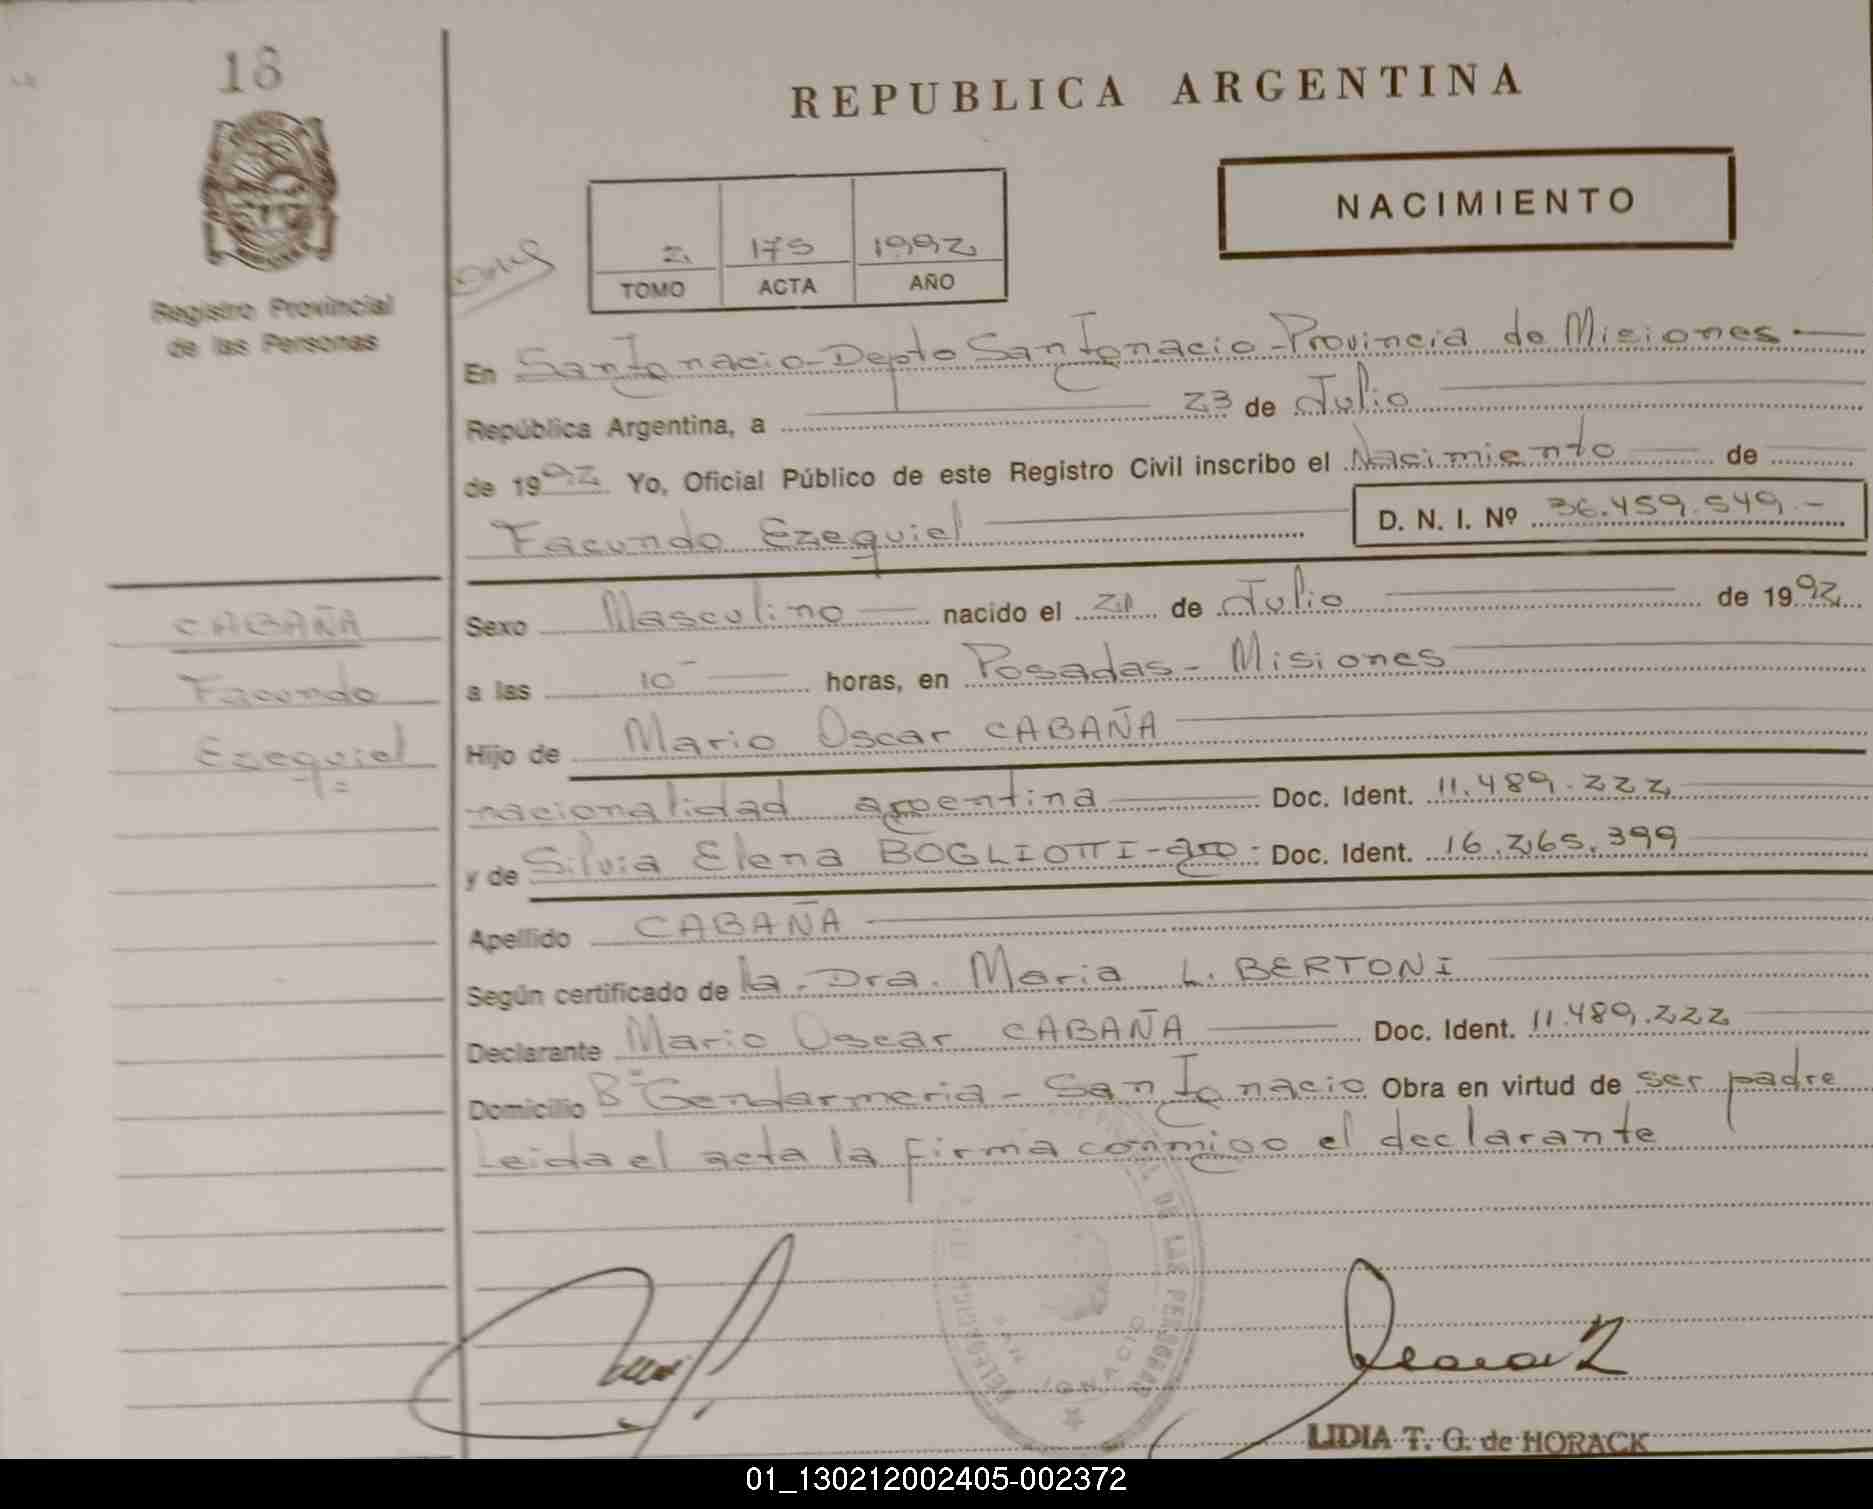 18
REPUBLICA ARGENTINA
NACIMIENTO
2 175 1992
TOMO ACTA AÑO
Registro Provincial
de las Personas
En San Ignacio - Depto San Ignacio - Provincia de Misiones
República Argentina, a 23 de Julio
de 1992 Yo, Oficial Público de este Registro Civil inscribo el Nacimiento de
Facundo Ezequiel D. N. I. Nº 36.459.549.-
CABAÑA
Facundo
Ezequiel
Sexo Masculino nacido el 21 de Julio de 1992
a las 10 horas, en Posadas - Misiones
Hijo de Mario Oscar CABAÑA
nacionalidad argentina Doc. Ident. 11.489.222
y de Silvia Elena BOGLIOTTI - arg - Doc. Ident. 16.265.399
Apellido CABAÑA
Según certificado de la Dra. Maria L. BERTONI
Declarante Mario Oscar CABAÑA Doc. Ident. 11.489.222
Domicilio Bº Gendarmeria - San Ignacio Obra en virtud de ser padre
Leida el acta la firma conmigo el declarante
DE LAS PERSONAS
IGNACIO
LIDIA T. G. de HORACK
01_130212002405-002372